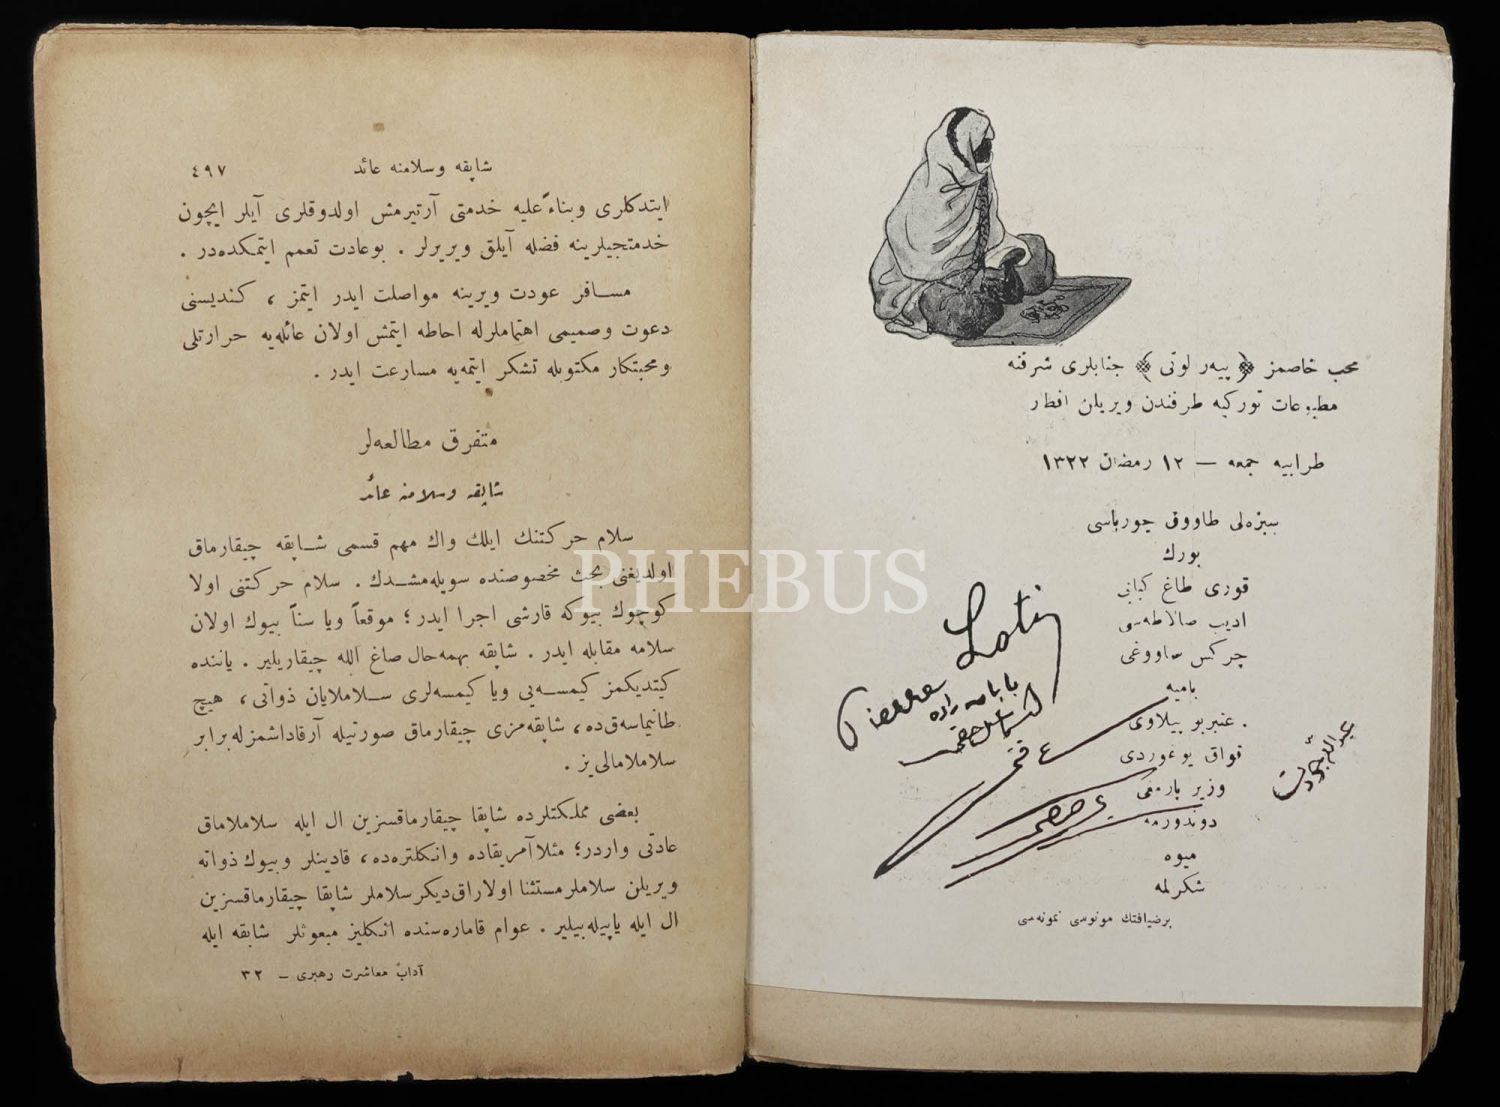 شاپقه وسلامنه عائد ٤٩٧
ایتدكلری وبناءً علیه خدمتی آرتیرمش اولدوقلری آیلر ایچون
خدمتجیلرینه فضله آیلق ویریرلر . بوعادت تعمم ایتمكده‌در .
مسافر عودت ویرینه مواصلت ایدر ایتمز ، كندیسنی
دعوت وصمیمی اهتماملرله احاطه ایتمش اولان عائله‌یه حرارتلی
ومحبتكار مكتوبله تشكر ایتمه‌یه مسارعت ایدر .
متفرق مطالعه‌لر
شاپقه وسلامنه عائد
سلام حركتنك ایلك واك مهم قسمی شاپقه چیقارماق
اولدیغنی بحث مخصوصنده سویله‌مشدك . سلام حركتنی اولا
كوچوك بیوكه قارشی اجرا ایدر ؛ موقعاً ویا سناً بیوك اولان
سلامه مقابله ایدر . شاپقه بهمه‌حال صاغ ال‌له چیقاریلیر . یاننده
كیتدیكمز كیمسه‌یی ویا كیمسه‌لری سلاملایان ذواتی ، هیچ
طانیماسه‌ق‌ده ، شاپقه‌مزی چیقارماق صورتیله آرقاداشمزله برابر
سلاملامالی‌یز .
بعضی مملكتلرده شاپقا چیقارماقسزین ال ایله سلاملاماق
عادتی واردر ؛ مثلا آمریقاده وانكلتره‌ده ، قادینلر وبیوك ذواته
ویریلن سلاملر مستثنا اولاراق دیكر سلاملر شاپقا چیقارماقسزین
ال ایله یاپیله‌بیلیر . عوام قاماره‌سنده انكلیز مبعوثلر شاپقه ایله
آداب معاشرت رهبری – ٣٢
محب خاصمز ﴿ پیه‌ر لوتی ﴾ جنابلری شرفنه
مطبوعات توركیه طرفندن ویریلن افطار
طرابیه جمعه — ١٢ رمضان ١٣٢٢
سبزه‌لی طاووق چورباسی
بورك
قوزی طاغ كبابی
ادیب صالاطه‌سی
چركس طاووغی
بامیه
عنبربو پیلاوی
قواق یوغوردی
وزیر پارمغی
دوندورمه
میوه
شكرلمه
برضیافتك مونوسی نمونه‌سی
Pierre Loti
بابان زاده
اسماعیل حقی
عبدالله جودت
PHEBUS